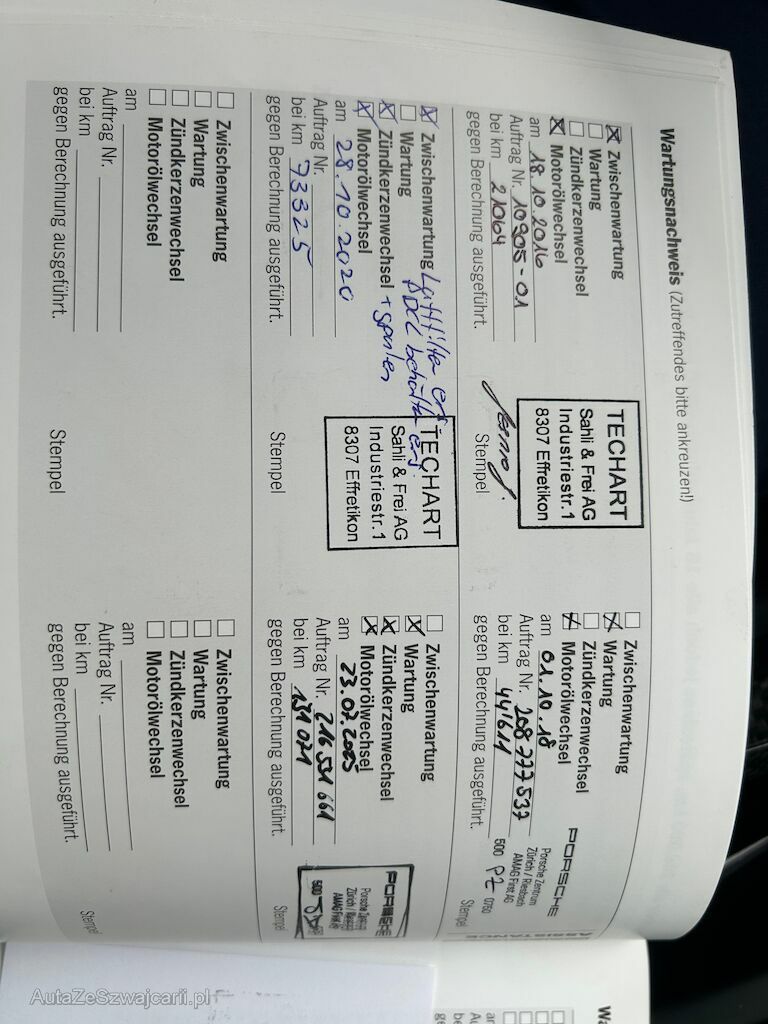 Wartungsnachweis (Zutreffendes bitte ankreuzen!)
Zwischenwartung
Wartung
Zündkerzenwechsel
Motorölwechsel
am 18.10.2016
Auftrag Nr. 10905-01
bei km 21064
gegen Berechnung ausgeführt.
TECHART
Sahli & Frei AG
Industriestr.1
8307 Effretikon
Stempel
Zwischenwartung
Wartung
Zündkerzenwechsel
Motorölwechsel
am 01.10.18
Auftrag Nr. 208 777 537
bei km 44'611
gegen Berechnung ausgeführt.
PORSCHE
Porsche Zentrum
Zürich / Riesbach
AMAG First AG
500 PZ 0760
Stempel
Zwischenwartung Luftfilter ers
Wartung
Zündkerzenwechsel + spulen
Motorölwechsel
am 28.10.2020
Auftrag Nr.
bei km 73325
gegen Berechnung ausgeführt.
TECHART
Sahli & Frei AG
Industriestr.1
8307 Effretikon
Stempel
Zwischenwartung
Wartung
Zündkerzenwechsel
Motorölwechsel
am 23.07.2025
Auftrag Nr. 216 531 661
bei km 131 071
gegen Berechnung ausgeführt.
PORSCHE
Porsche
Zürich /
AMAG First
500
Stempel
Zwischenwartung
Wartung
Zündkerzenwechsel
Motorölwechsel
am
Auftrag Nr.
bei km
gegen Berechnung ausgeführt.
Stempel
Zwischenwartung
Wartung
Zündkerzenwechsel
Motorölwechsel
am
Auftrag Nr.
bei km
gegen Berechnung ausgeführt.
Stempel
ASSISTANCE
AutaZeSzwajcarii.pl